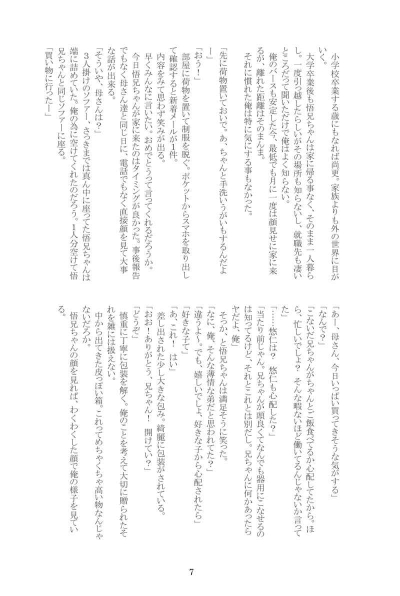 小学校卒業する歳にもなれば尚更。家族よりも外の世界に目が
いく。
大学卒業後も悟兄ちゃんは家に帰る事なく、そのまま一人暮ら
し。一度引っ越したらしいがその場所も知らないし、就職先も凄い
ところだって聞いただけで俺はよく知らない。
俺のバースも安定した今、最低でも月に一度は顔見せに家に来
るが、離れた距離はそのまんま。
それに慣れた俺は特に気にする事もなかった。
「先に荷物置いておいで。あ、ちゃんと手洗いうがいもするんだよ
ー」
「おう！」
部屋に荷物を置いて制服を脱ぐ。ポケットからスマホを取り出し
て確認すると新着メールが１件。
内容をみて思わず笑みが出る。
早くみんなに言いたい。おめでとうって言ってくれるだろうか。
今日悟兄ちゃんが家に来たのはタイミングが良かった。事後報告
でもなく母さん達と同じ日に、電話でもなく直接顔を見て大事
な話が出来る。
「そういや、母さんは？」
３人掛けのソファー、さっきまでは真ん中に座ってた悟兄ちゃんは
端に詰めていた。俺の為に空けてくれたのだろう。１人分空けて悟
兄ちゃんと同じソファーに座る。
「買い物に行ったー」
「あー、母さん、今日いっぱい買ってきそうな気がする」
「なんで？」
「こないだ兄ちゃんがちゃんとご飯食べてるか心配してたから。ほ
ら、忙しいでしょ？　そんな暇ないほど働いてるんじゃないか言って
た」
「……悠仁は？　悠仁も心配した？」
「当たり前じゃん。兄ちゃんが頭良くてなんでも器用にこなせるの
は知ってるけど、それとこれとは別だし。兄ちゃんに何かあったら
ヤだよ、俺」
そっか、と悟兄ちゃんは満足そうに笑った。
「なに、俺、そんな薄情な弟だと思われてた？」
「違うよ～。でも、嬉しいでしょ、好きな子から心配されたら」
「好きな子て」
「あ、これ！　はい」
差し出された少し大きな包み。綺麗に包装がされている。
「おお！　ありがとう、兄ちゃん！　開けていい？」
「どうぞ」
慎重に丁寧に包装を解く。俺のことを考えて大切に贈られたそ
れを雑には扱えない。
中から出てきた皮っぽい箱。これってめちゃくちゃ高い物なんじゃ
ないだろか。
悟兄ちゃんの顔を見れば、わくわくした顔で俺の様子を見てい
る。
7